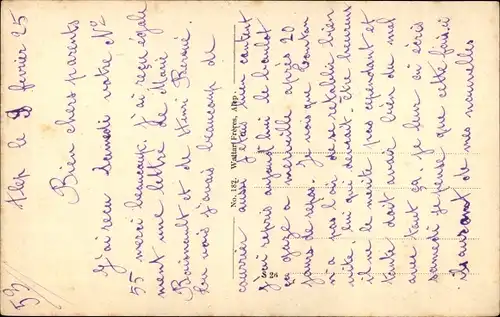 53/
Alep le 9 fevrier 25
Bien chers parents
J'ai recu Samedi votre No
55 merci beaucoup, j'ai reçu égale
ment une lettre de Marie
Boisnault et de Henri
tu vois j'avais beaucoup de
No. 182. Wattar Frères, Alep.
courrier aussi j'étais bien content
J'ai repris aujourd'hui le boulot
ça gaze a merveille après 20
jours de repos. Je vois que Tonton
n'a pas l'air de se retablir bien
vite, lui qui devrait être heureux
il ne le merite pas cependant et
tante doit avoir bien du mal
avec tout ça. je leur ai écris
samedi je pense que cette fois ci
ils auront de mes nouvelles